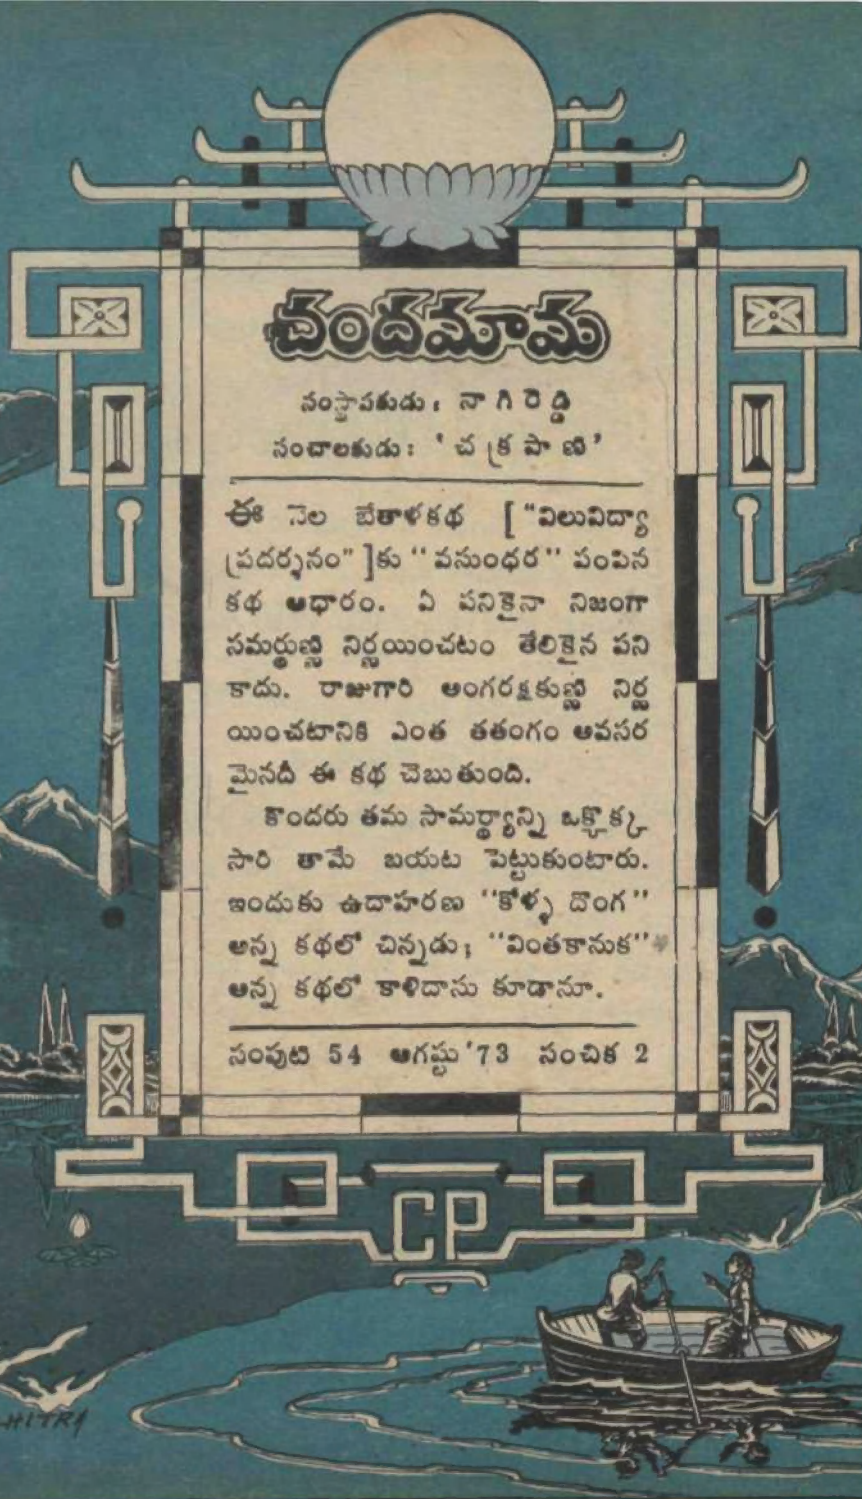 చందమామ
సంస్థాపకుడు : నాగిరెడ్డి
సంచాలకుడు : ‘చక్రపాణి’
ఈ నెల బేతాళకథ [“విలువిద్యా
ప్రదర్శనం”]కు “వసుంధర” పంపిన
కథ ఆధారం. ఏ పనికైనా నిజంగా
సమర్థుణ్ణి నిర్ణయించటం తేలికైన పని
కాదు. రాజుగారి అంగరక్షకుణ్ణి నిర్ణ
యించటానికి ఎంత తతంగం అవసర
మైనదీ ఈ కథ చెబుతుంది.
కొందరు తమ సామర్థ్యాన్ని ఒక్కొక్క
సారి తామే బయట పెట్టుకుంటారు.
ఇందుకు ఉదాహరణ “కోళ్ళ దొంగ”
అన్న కథలో చిన్నడు; “వింతకానుక”
అన్న కథలో కాళిదాసు కూడానూ.
సంపుటి 54 ఆగష్టు '73 సంచిక 2
CP
HITRA